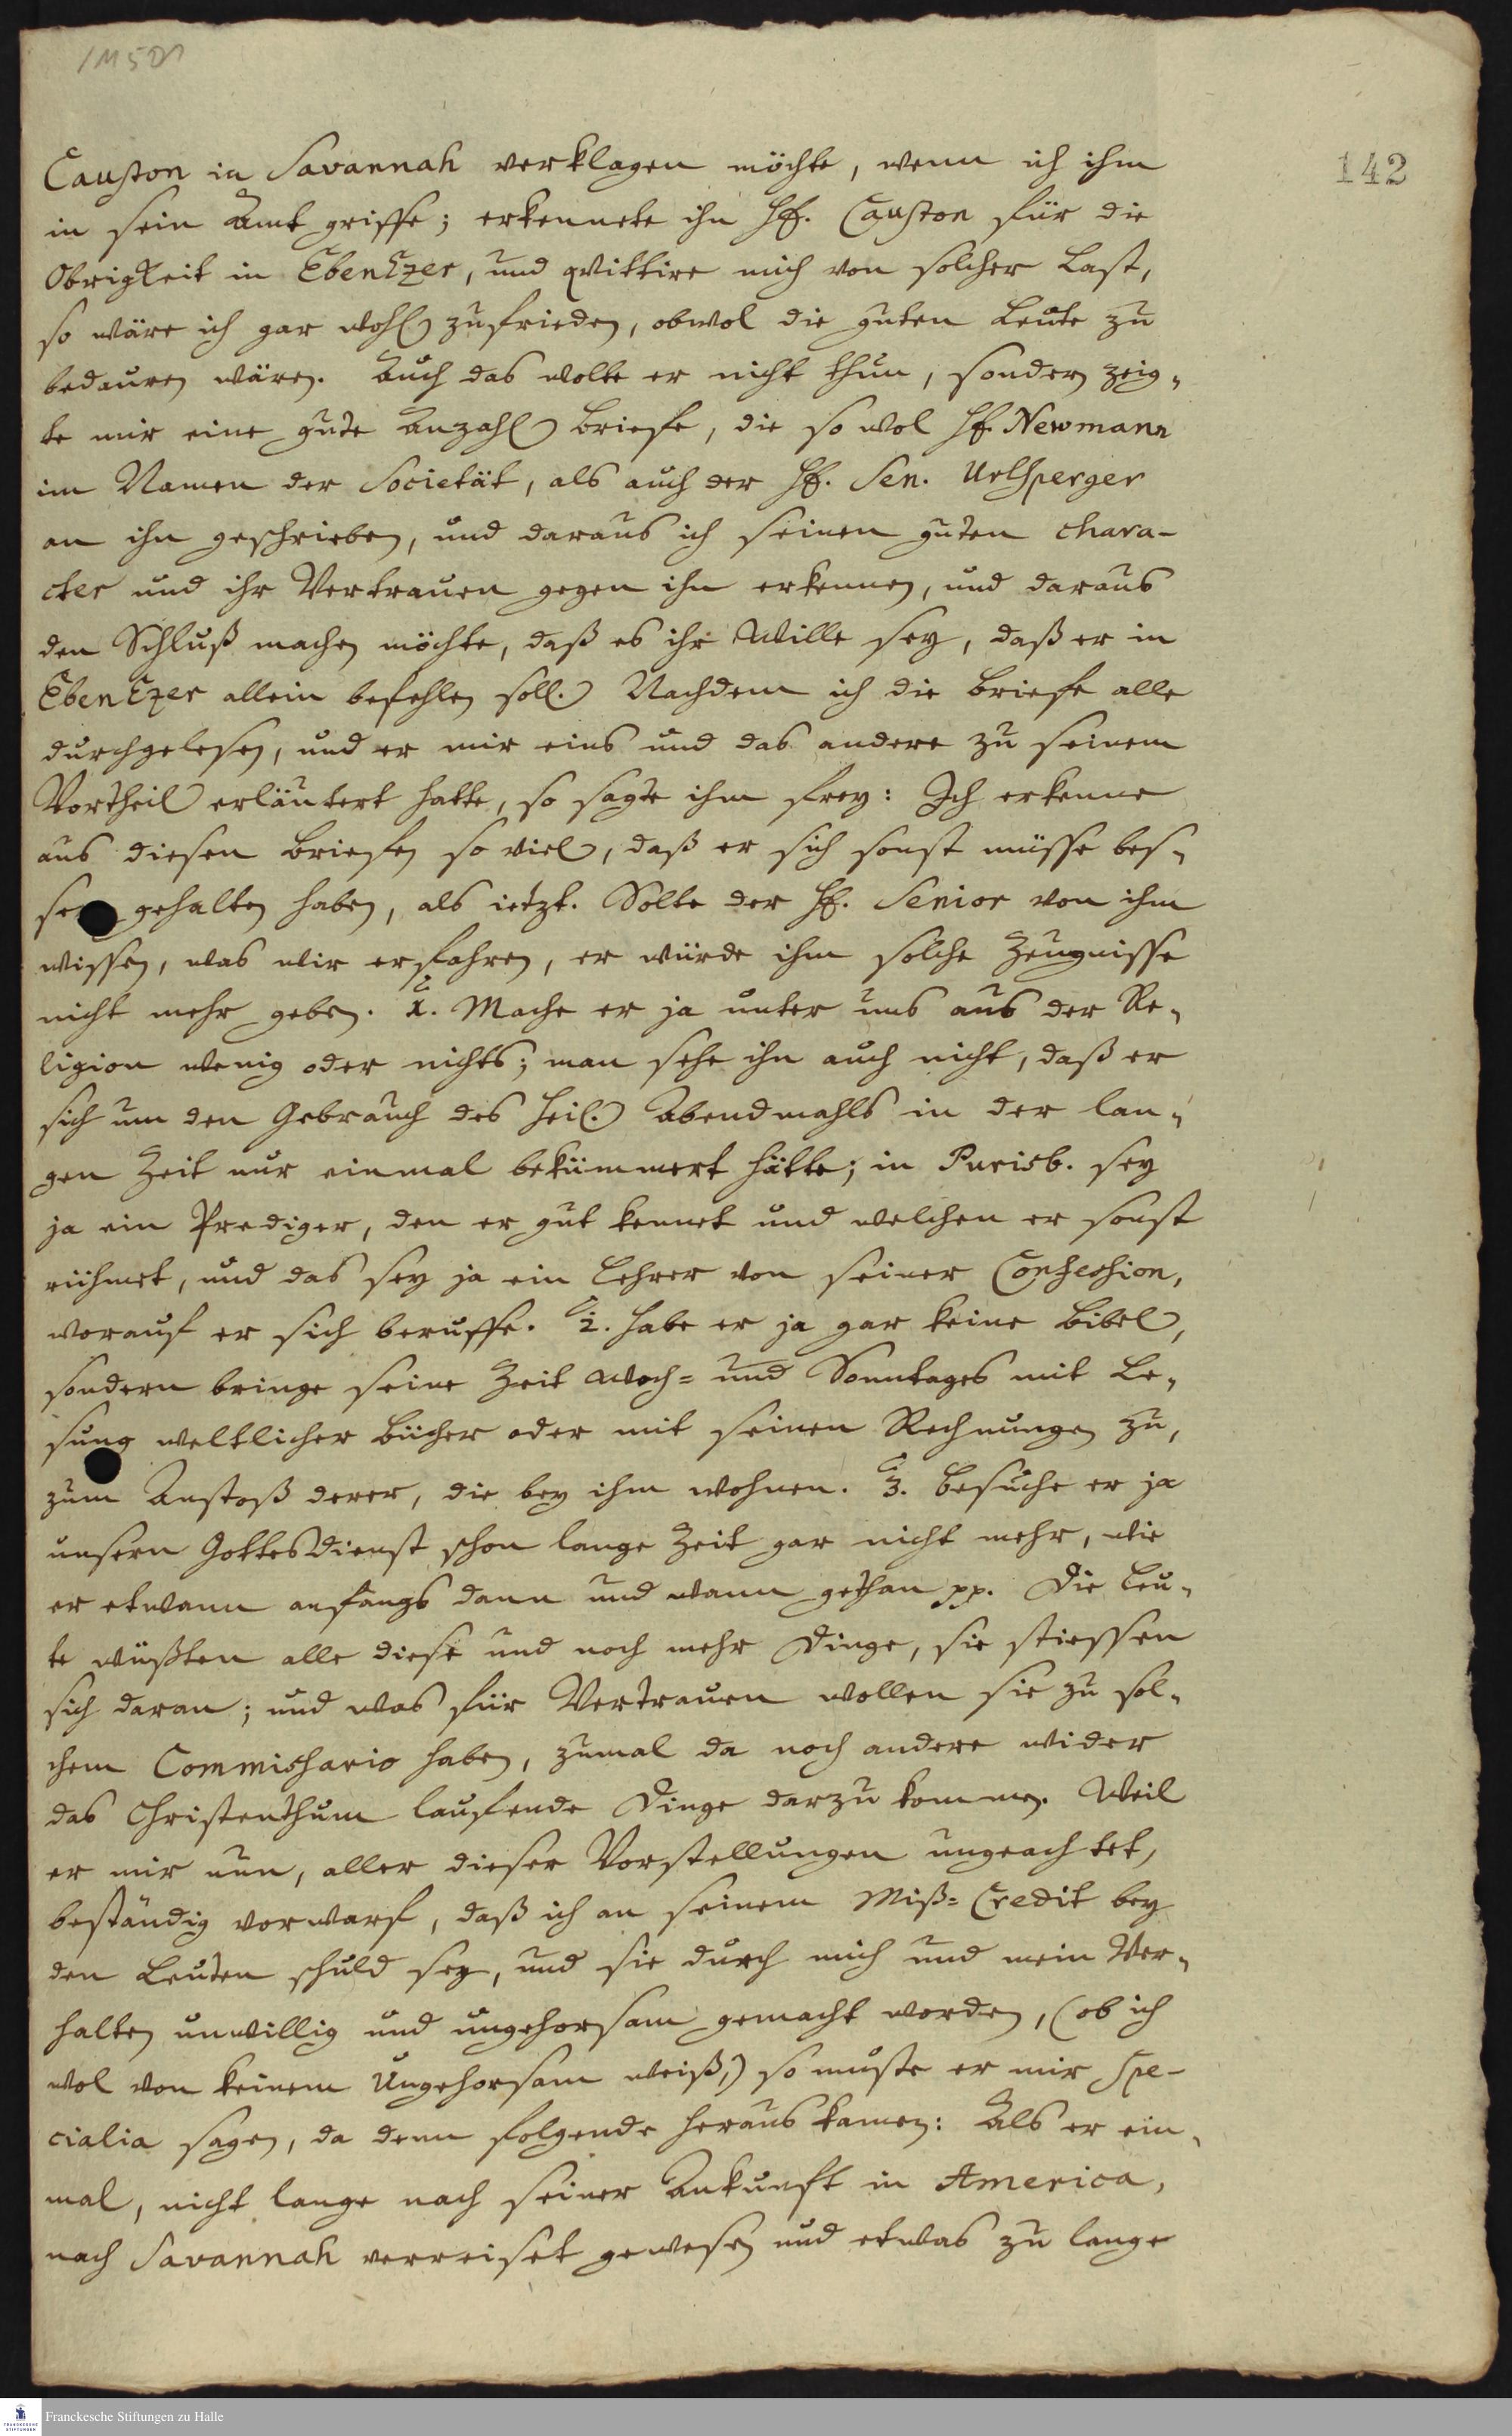 /M 501
142
Causton in Savannah verklagen möchte, wenn ich ihm
in sein Amt griffe; erkennete ihn H. Causton für die
Obrigkeit in EbenEzer, und qvittire mich von solcher Last,
so wäre ich gar wohl zufrieden, obwol die guten Leute zu
bedauren wären. Auch das wolte er nicht thun, sondern zeig-
te mir eine gute Anzahl Briefe, die so wol H. Newmann
im Namen der Societät, als auch der H. Sen. Urlsperger
an ihn geschrieben, und daraus ich seinen guten chara-
cter und ihr Vertrauen gegen ihn erkennen, und daraus
den Schluß machen möchte, daß es ihr Wille sey, daß er in
EbenEzer allein befehlen soll. Nachdem ich die Briefe alle
durchgelesen, und er mir eins und das andere zu seinem
Vortheil erläutert hatte, so sagte ihm frey: Ich erkenne
aus diesen Briefen so viel, daß er sich sonst müsse bes-
ser gehalten haben, als ietzt. Solte der H. Senior von ihm
wissen, was wir erfahren, er würde ihm solche Zeugnisse
nicht mehr geben. 1. Mache er ja unter uns aus der Re-
ligion wenig oder nichts; man sehe ihn auch nicht, daß er
sich um den Gebrauch des heil. Abendmahls in der lan-
gen Zeit nur einmal bekümmert hätte; in Purisb. sey
ja ein Prediger, den er gut kennet und welchen er sonst
rühmet, und das sey ja ein Lehrer von seiner Confession,
worauf er sich beruffe. 2. habe er ja gar keine Bibel,
sondern bringe seine Zeit Woch= und Sonntages mit Le-
sung weltlicher Bücher oder mit seinen Rechnungen zu,
zum Anstoß derer, die bey ihm wohnen. 3. Besuche er ja
unsern Gottesdienst schon lange Zeit gar nicht mehr, wie
er etwann anfangs dann und wann gethan pp. Die Leu-
te wüßten alle diese und noch mehr Dinge, sie stiessen
sich daran; und was für Vertrauen wollen sie zu sol-
chem Commissario haben, zumal da noch andere wider
das Christenthum lauffende Dinge darzu kommen. Weil
er mir nun, aller dieser Vorstellungen ungeachtet,
beständig vorwarf, daß ich an seinem Miß=Credit bey
den Leuten schuld sey, und sie durch mich und mein Ver-
halten unwillig und ungehorsam gemacht worden, (ob ich
wol von keinem Ungehorsam weiß,) so muste er mir spe-
cialia sagen, da denn folgende heraus kamen: Als er ein-
mal, nicht lange nach seiner Ankunft in America,
nach Savannah verreiset gewesen und etwas zu lange
Franckesche Stiftungen zu Halle
FRANCKESCHE
STIFTUNGEN